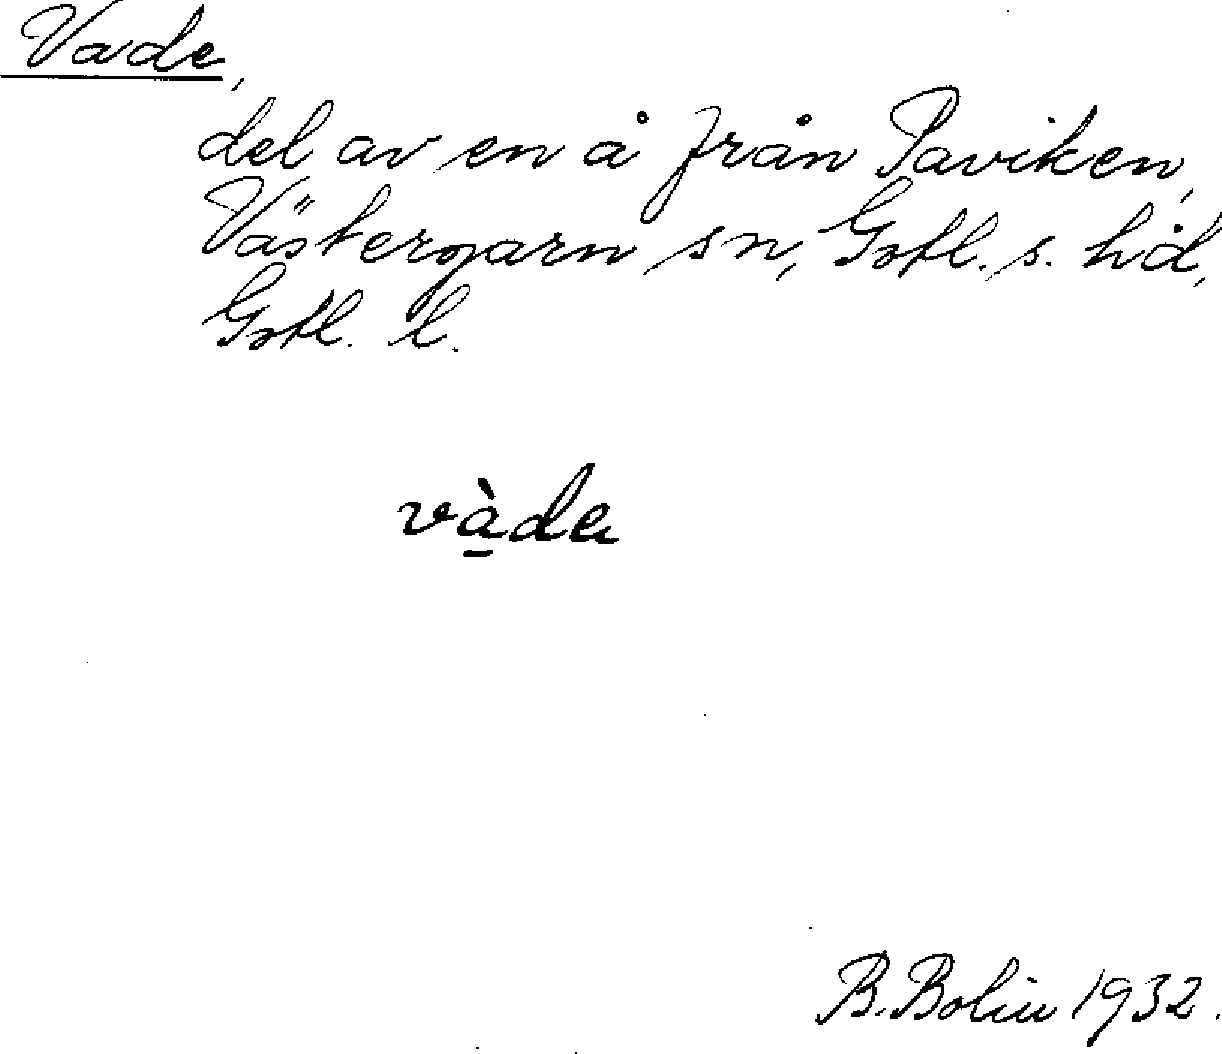 Vade,
del av en å från Paviken,
Västergarn sn, Gotl. s. hd,
Gotl. l.
và̱da
B. Bolin 1932.